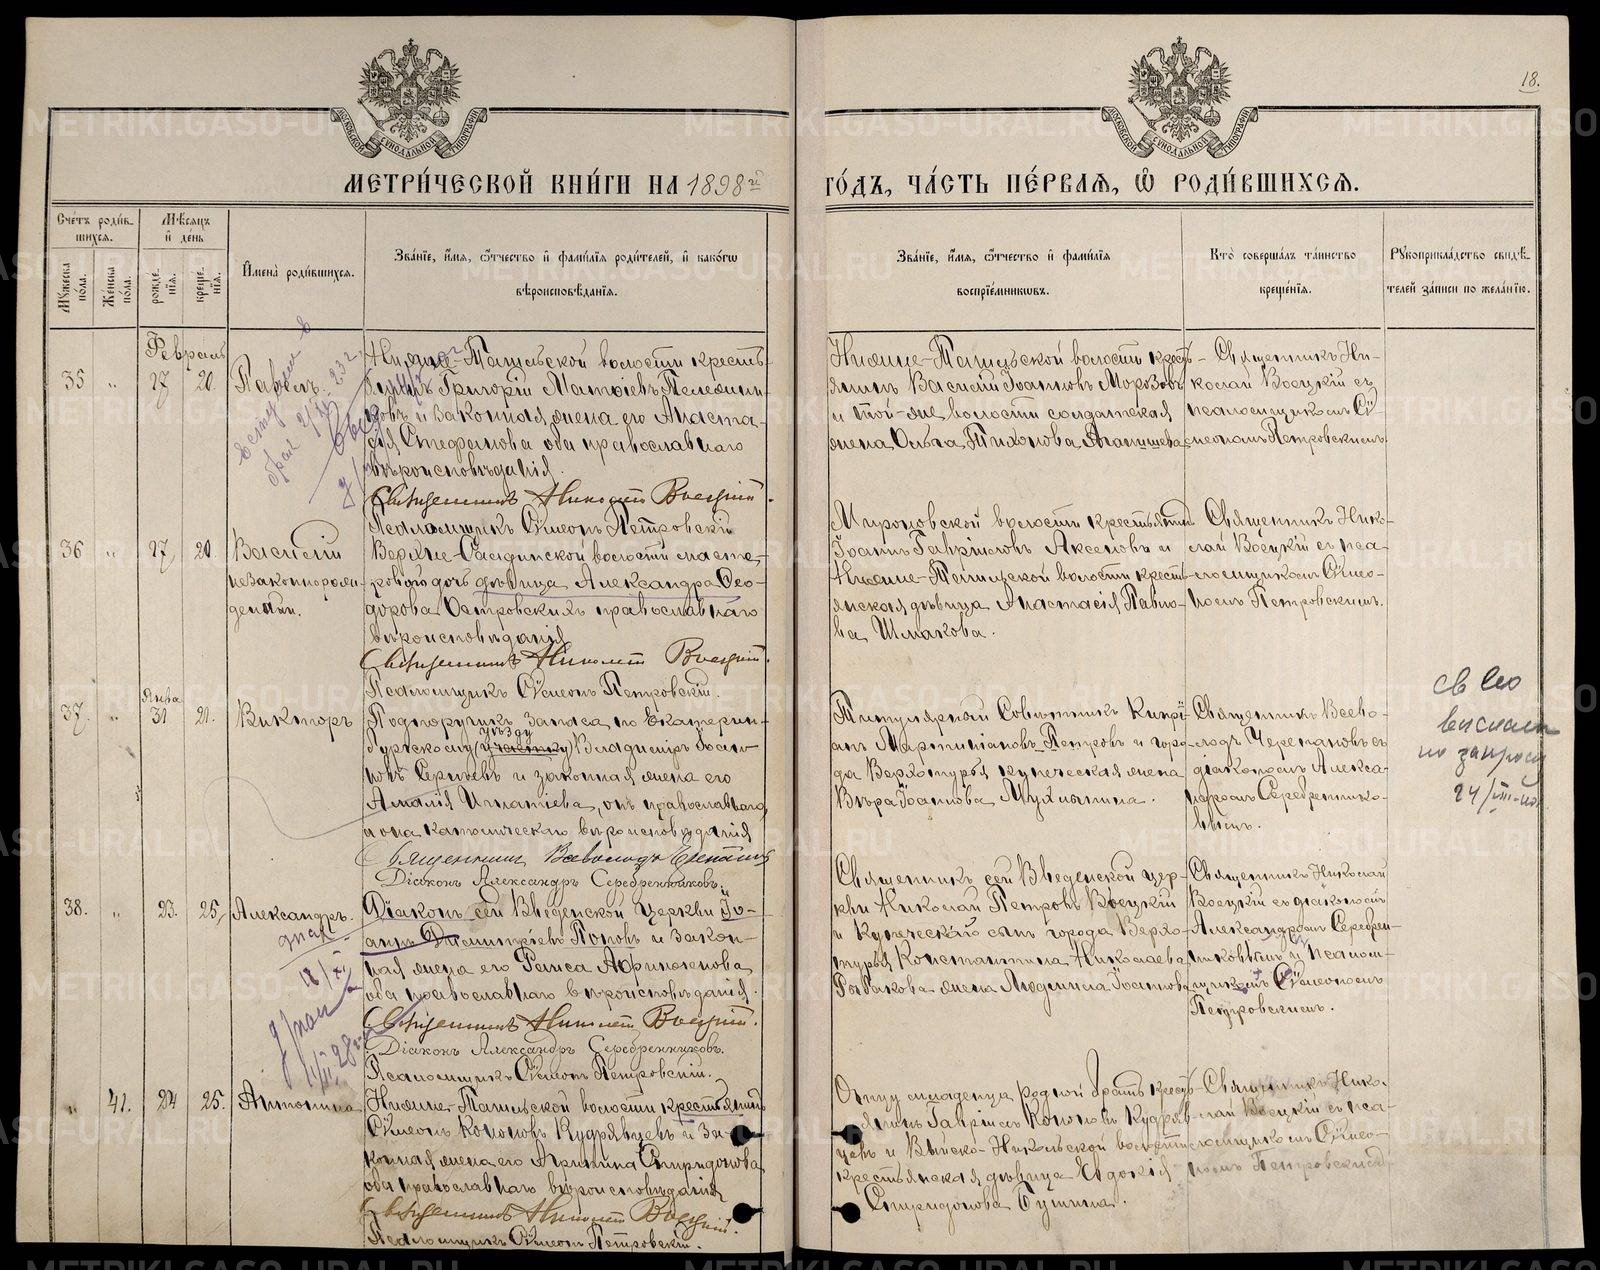 18.
МЕТРИ́ЧЕСКОЙ КНИ́ГИ НА 1898й
ГО́ДЪ, ЧА́СТЬ ПЕ́РВАЯ, Ѡ РОДИ́ВШИХСЯ.
Сче́тъ роди́в-
шихся.
Му́жеска по́ла.
Же́нска по́ла.
Мѣ́сяцъ
и де́нь
рожде́-
нїя.
креще́-
нїя.
Имена̀ роди́вшихся.
Зва́нїе, и́мя, ѻ́тчество и фами́лїя роди́телей, и како́гѡ
вѣроисповѣ́данїя.
Зва́нїе, и́мя, ѻ́тчество и фами́лїя
воспрїе́мникѡвъ.
Кто̀ соверша́лъ та́инство
креще́нїя.
Рꙋкоприкла́дство свидѣ́-
телей за́писи по жела́нїю.
Февраль
35 " 17 20. Павелъ.
Нижне-Тагильской волости кресть-
янинъ Григорій Матѳіевъ
и законная жена его Анаста-
сія Стефанова оба православнаго
вѣроисповѣданія.
Священникъ Николай Воецкій.
Псаломщикъ Сѵмеонъ Петровскій
Нижне-Тагильской волости кресть-
янинъ Василій Іоанновъ Морозовъ
и той-же волости солдатская
жена Ольга Тихонова
Священникъ Ни-
колай Воецкій съ
псаломщикомъ Сѵ-
меономъ Петровскимъ.
36 " 17 20. Василій
незаконнорож-
денный.
Верхне-Салдинской волости масте-
рового дочь дѣвица Александра Ѳео-
дорова Островскихъ православнаго
вѣроисповѣданія
Священникъ Николай Воецкій.
Псаломщикъ Сѵмеонъ Петровскій.
Мироновской волости крестьянинъ
Іоаннъ Гавріиловъ Аксеновъ и
Нижне-Тагильской волости кресть-
янская дѣвица Анастасія Павло-
ва Шмакова.
Священникъ Нико-
лай Воецкій съ пса-
ломщикомъ Сѵмео-
номъ Петровскимъ.
Янва.
37. " 31 21. Викторъ
Подпоручикъ запаса по Екатерин-
бургскому уѣзду Владиміръ Іоан-
новъ Сергѣевъ и законная жена его
Амалія Игнатіева, онъ православнаго,
а она католическаго вѣроисповѣданія
Священникъ Всеволодъ Черепановъ
Діаконъ Александръ Серебренниковъ.
Титулярный Совѣтникъ Кипрі-
анъ Мартиніановъ Петровъ и горо-
да Верхотурья купеческая жена
Вѣра Іоаннова Мухлынина.
Священникъ Всево-
лодъ Черепановъ съ
діакономъ Алекса-
ндромъ Серебреннико-
вымъ.
выслан
по запросу
24/VIII
38. " 23. 25. Александръ.
Діаконъ сей Введенской церкви Іо-
аннъ Димитріевъ Поповъ и закон-
ная жена его Раиса Афиногенова
оба православнаго вѣроисповѣданія.
Священникъ Николай Воецкій.
Діаконъ Александръ Серебренниковъ.
Псаломщикъ Сѵмеонъ Петровскій.
Священникъ сей Введенской цер-
кви Николай Петровъ Воецкій
и купеческаго сына города Верхо-
турья Константина Николаева
Рыбакова жена Людмила Іоаннова
Священникъ Николай
Воецкій съ діакономъ
Александромъ Серебрен-
никовымъ и псалом-
щикомъ Сѵмеономъ
Петровскимъ.
" 41. 24 25. Антонина
Нижне-Тагильской волости крестьянинъ
Сѵмеонъ Кононовъ Кудрявцевъ и за-
конная жена его Агрипина Спиридонова,
оба православнаго вѣроисповѣданія
Священникъ Николай Воецкій.
Псаломщикъ Сѵмеонъ Петровскій.
Отцу младенца родной братъ кресть-
янинъ Гавріилъ Кононовъ Кудряв-
цевъ и Выйско-Никольской волости
крестьянская дѣвица Евдокія
Спиридонова
Священникъ Нико-
лай Воецкій съ пса-
ломщикомъ Сѵмео-
номъ Петровскимъ.
METRIKI.GASO-URAL.RU